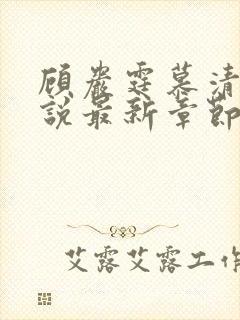 顾严霆慕清
说最新章节
艾露艾露工作